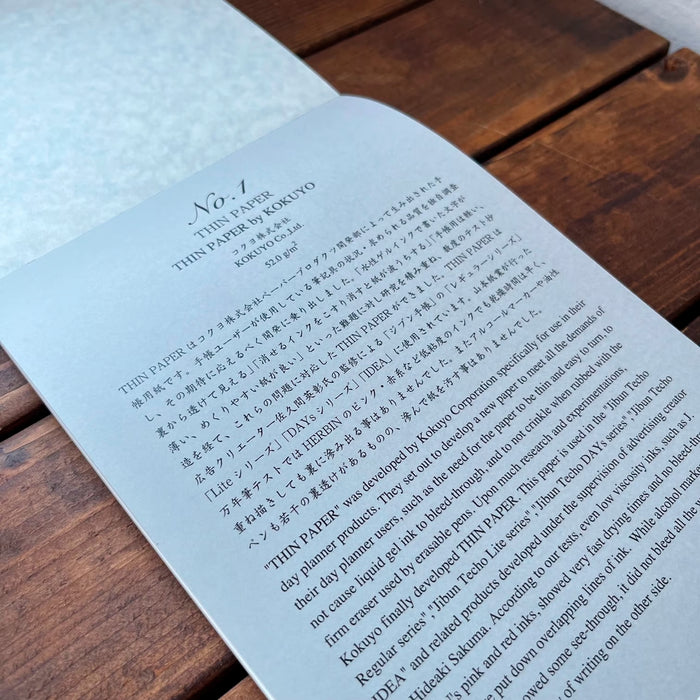 No.1
THIN PAPER
THIN PAPER by KOKUYO
コクヨ株式会社
KOKUYO Co.,Ltd.
52.0 g/m²
THIN PAPER はコクヨ株式会社ペーパープロダクツ開発部によって生み出された手
帳用紙です。手帳ユーザーが使用している筆記具の状況・求められる品質を独自調査
し、その期待に応えるべく開発に乗り出しました。「水性ゲルインクで書いた文字が
裏から透けて見える」「消せるインクをこすり消すと紙が波うちする」「手帳用は軽い、
薄い、めくりやすい紙が良い」といった難題に対し研究を積み重ね、数度のテスト抄
造を経て、これらの問題に対応した THIN PAPER ができました。THIN PAPER は
広告クリエーター佐久間英彰氏の監修による「ジブン手帳」の「レギュラーシリーズ」
「Lite シリーズ」「DAYs シリーズ」「IDEA」に使用されています。山本紙業が行った
万年筆テストでは HERBIN のピンク・赤系など低粘度のインクでも乾燥時間は早く、
重ね描きしても裏に滲み出る事はありませんでした。またアルコールマーカーや油性
ペンも若干の裏透けがあるものの、滲んで紙を汚す事はありませんでした。
"THIN PAPER" was developed by Kokuyo Corporation specifically for use in their
day planner products. They set out to develop a new paper to meet all the demands of
their day planner users, such as the need for the paper to be thin and easy to turn, to
not cause liquid gel ink to bleed-through, and to not crinkle when rubbed with the
firm eraser used by erasable pens. Upon much research and experimentations,
Kokuyo finally developed THIN PAPER. This paper is used in the "Jibun Techo
Regular series", "Jibun Techo Lite series", "Jibun Techo DAYs series", "Jibun Techo
IDEA" and related products developed under the supervision of advertising creator
Hideaki Sakuma. According to our tests, even low viscosity inks, such as J
's pink and red inks, showed very fast drying times and no bleed
put down overlapping lines of ink. While alcohol mark
owed some see-through, it did not bleed all
of writing on the other side.